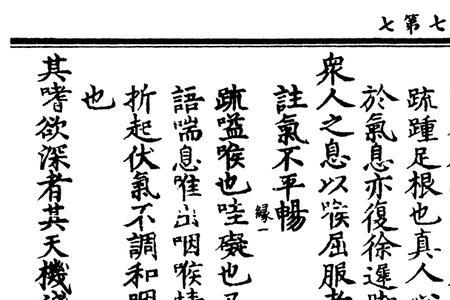 七第七
疏踵足根也真人
於氣息亦復徐遲
衆人之息以喉屈服者
註氣不平暢
緣一
疏嗌喉也哇礙也
語喘息唯出咽喉情
折起伏氣不調和咽
也
其嗜欲深者其天機